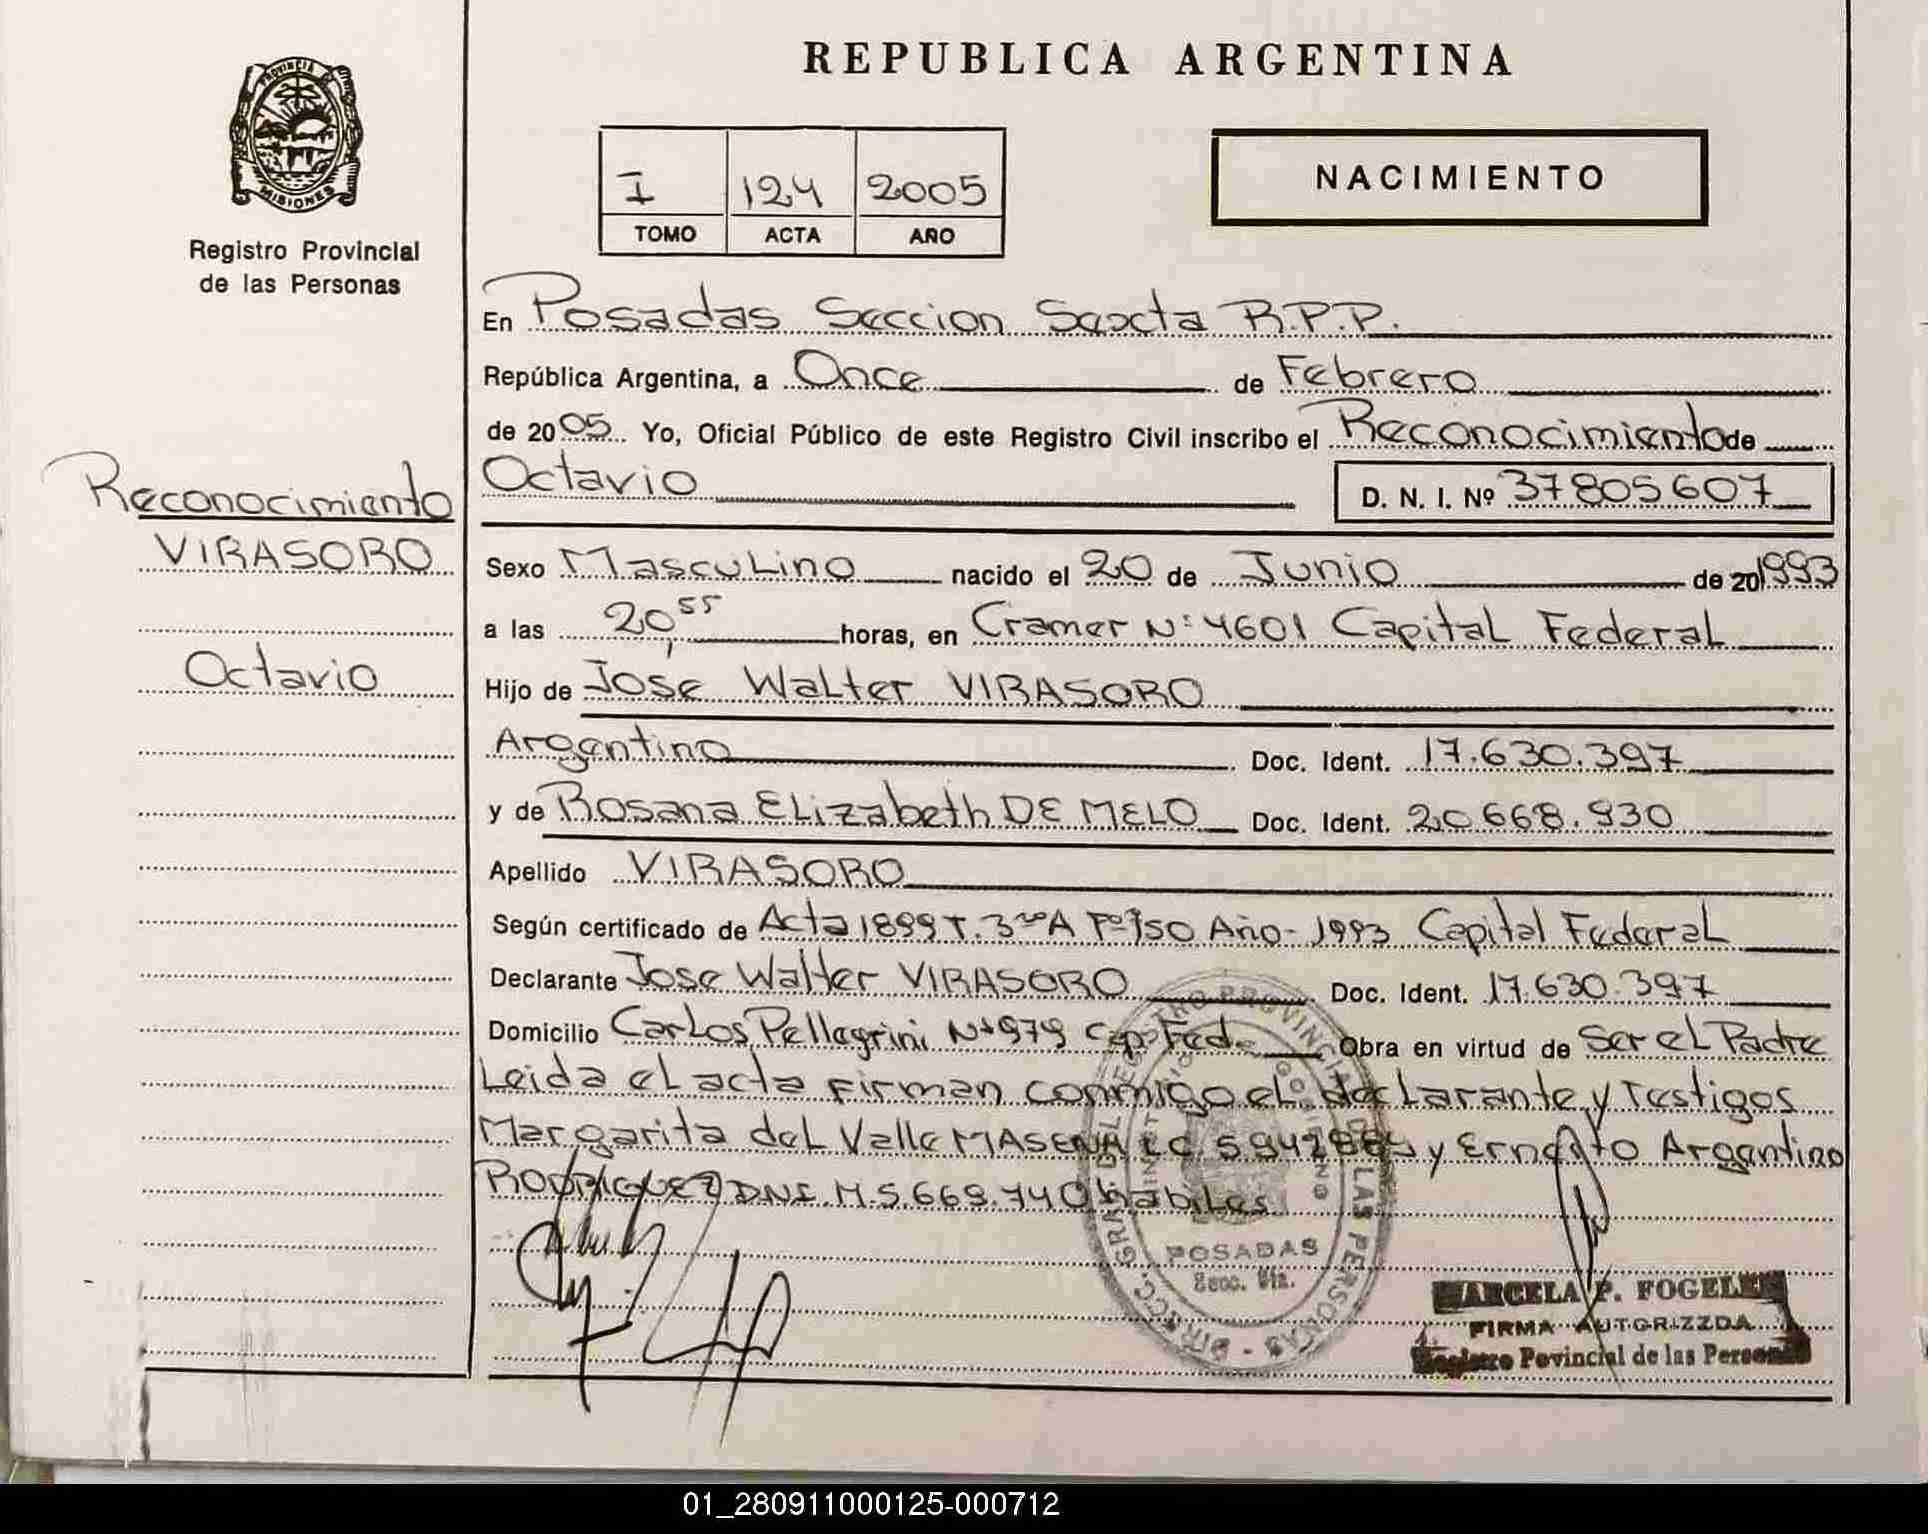 REPUBLICA ARGENTINA
PROVINCIA
MISIONES
Registro Provincial
de las Personas
I 124 2005
TOMO ACTA AÑO
NACIMIENTO
En Posadas Seccion Sexta R.P.P.
República Argentina, a Once de Febrero
de 2005 Yo, Oficial Público de este Registro Civil inscribo el Reconocimiento de
Octavio D. N. I. Nº 37805607
Reconocimiento
VIRASORO
Octavio
Sexo Masculino nacido el 20 de Junio de 20 1993
a las 20,55 horas, en Cramer Nº 4601 Capital Federal
Hijo de José Walter VIRASORO
Argentino Doc. Ident. 17.630.397
y de Rosana Elizabeth DE MELO Doc. Ident. 20668.930
Apellido VIRASORO
Según certificado de Acta 1899 T. 3ro A Fº 150 Año - 1993 Capital Federal
Declarante Jose Walter VIRASORO Doc. Ident. 17.630.397
Domicilio Carlos Pellegrini Nº 979 Cap. Fed. Obra en virtud de Ser el Padre
Leida el acta firman conmigo el declarante y testigos
Margarita del Valle L.C. y Ernesto Argentino
RODRIGUEZ DNI. M. 5.669.740 habiles
POSADAS
Secc. 6ta.
MARCELA P. FOGELER
FIRMA AUTORIZZDA
Registro Povincial de las Personas
01_280911000125-000712